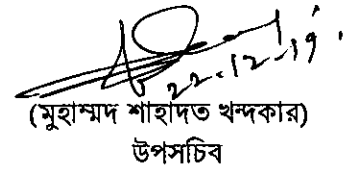 22-12-19
(মুহাম্মদ শাহাদত খন্দকার)
উপসচিব